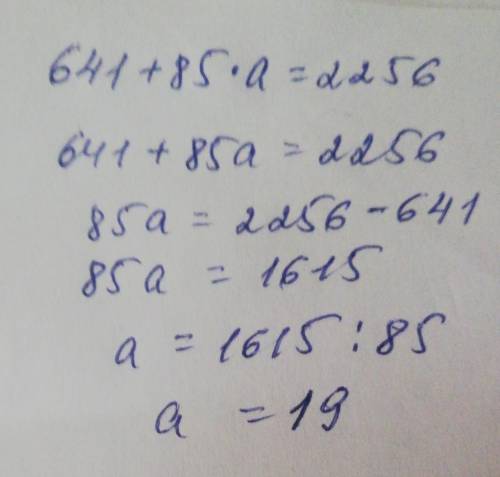 641+85·a=2256
641+85a=2256
85a=2256-641
85a=1615
a=1615:85
a=19